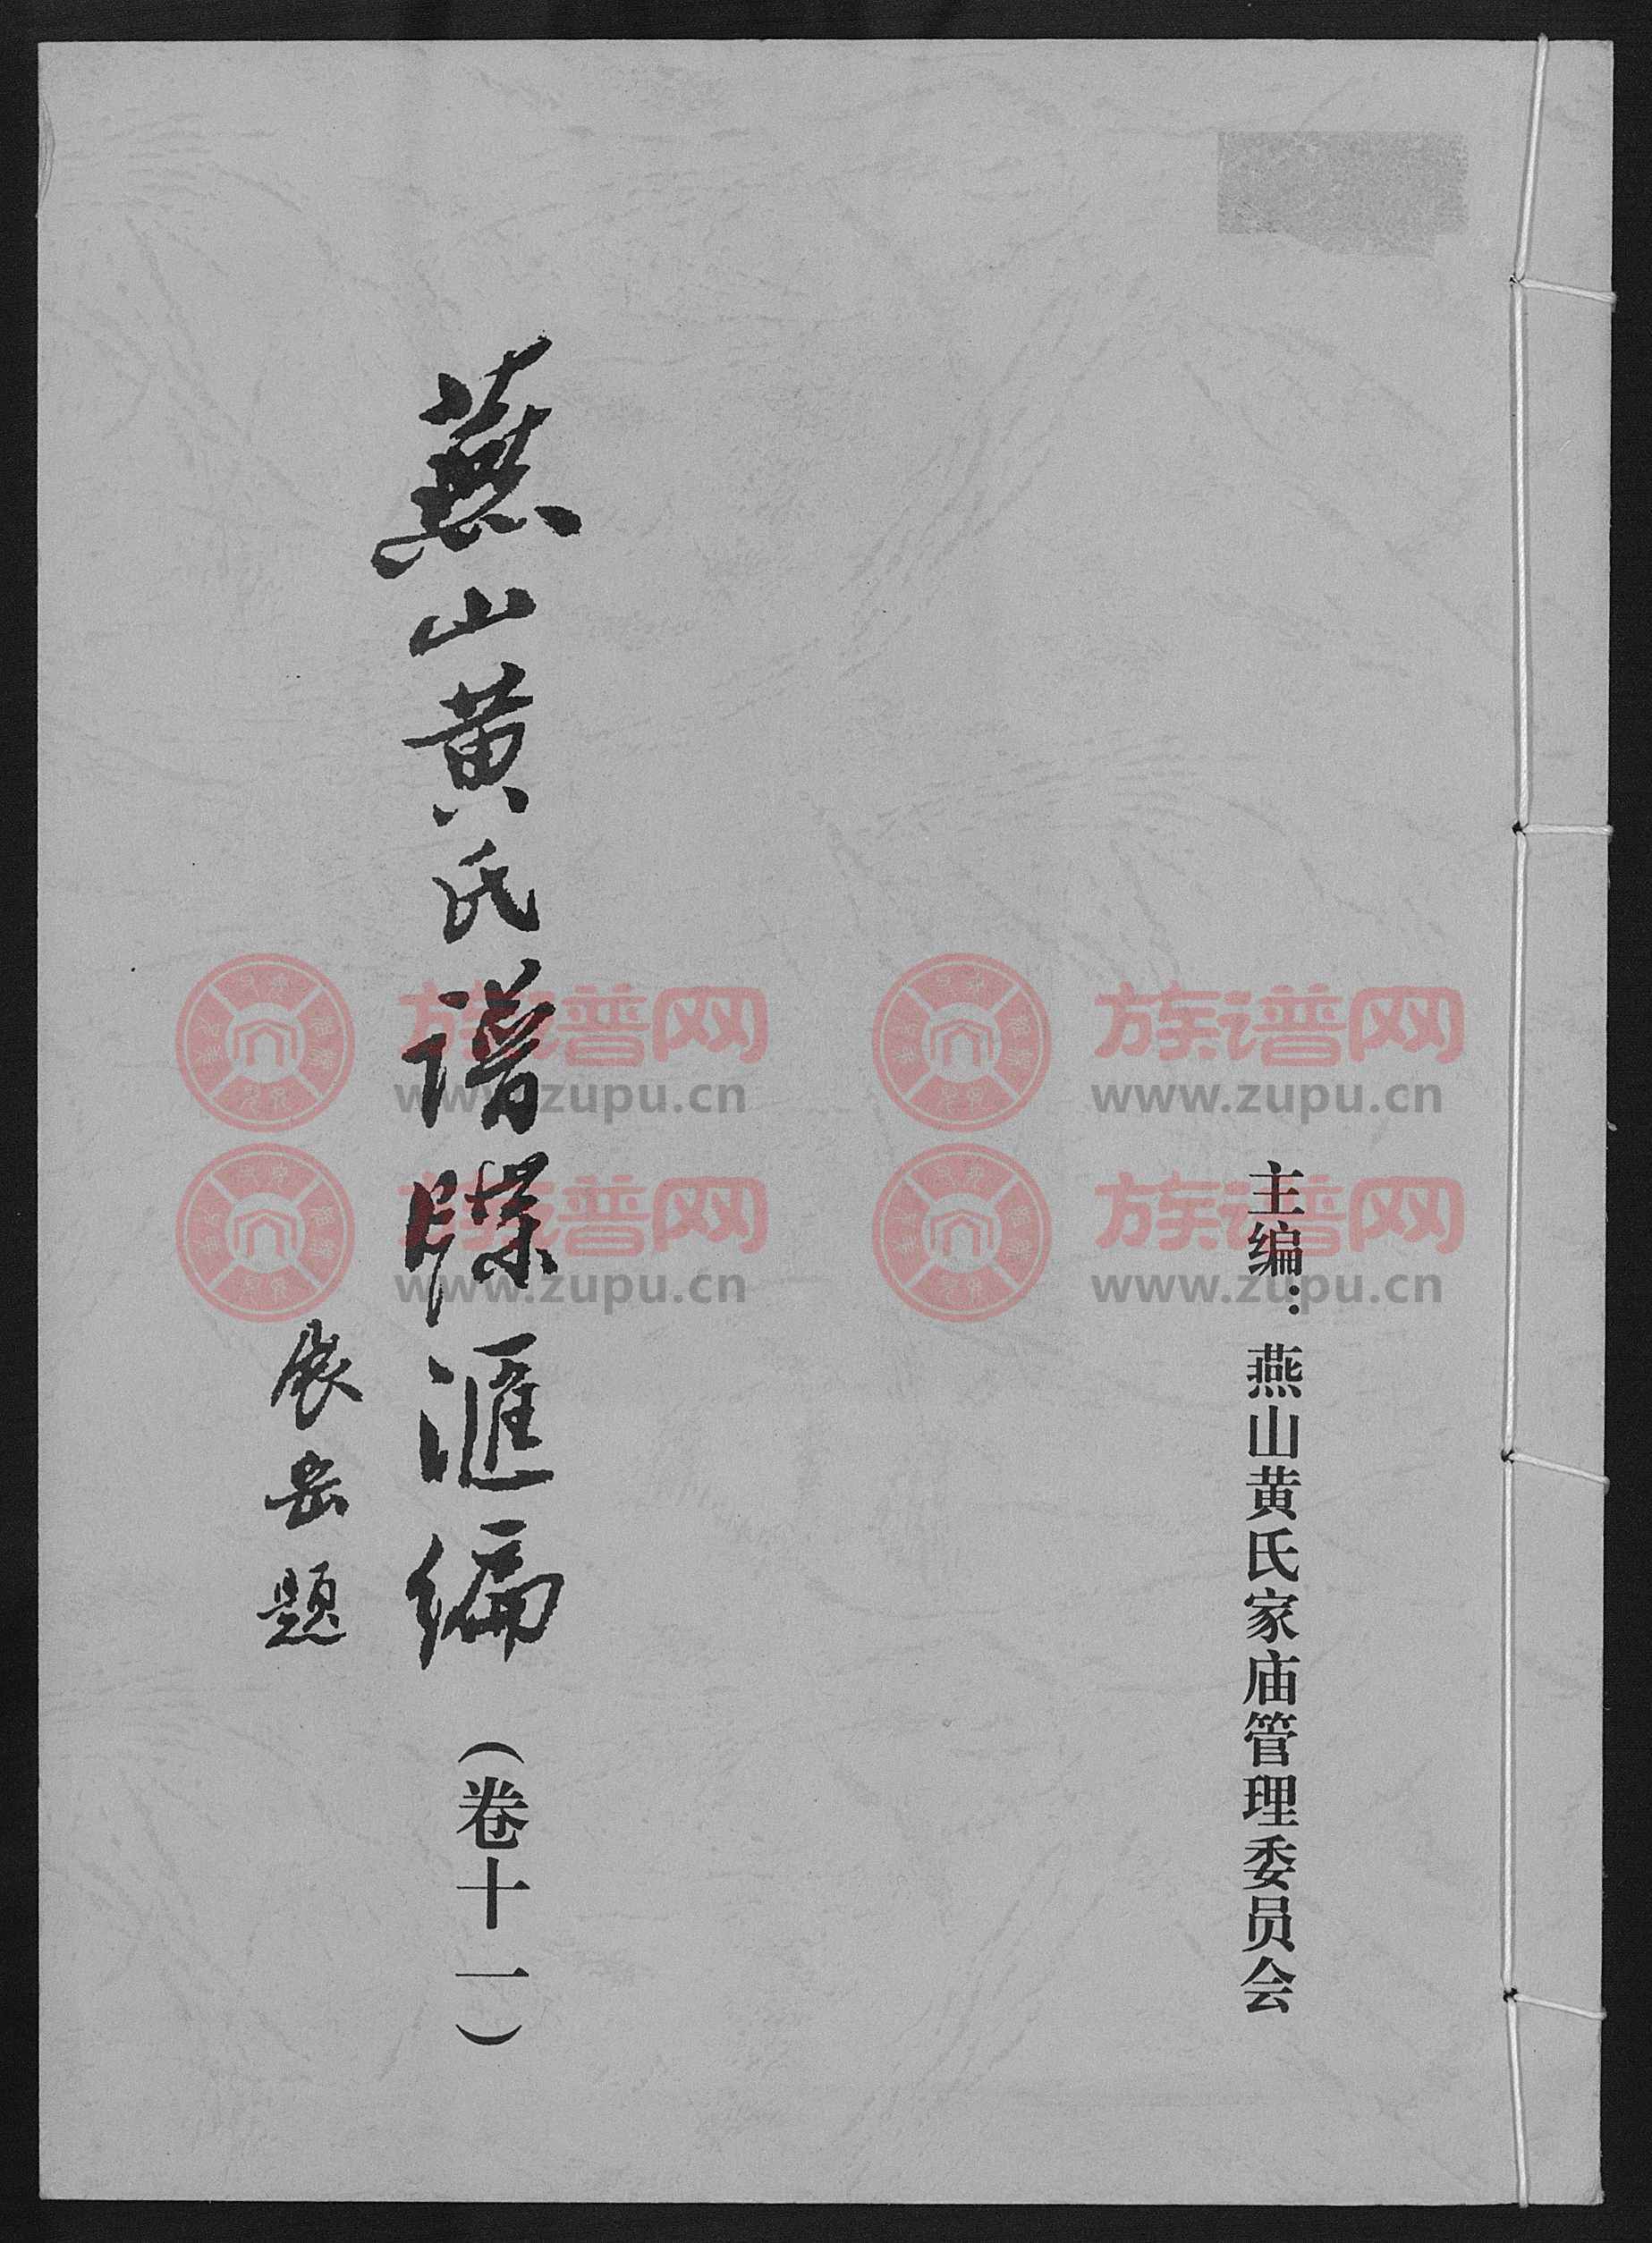 主编：燕山黄氏家庙管理委员会
燕山黄氏谱牒滙编（卷十一）
展岳题
族谱网
www.zupu.cn
族谱网
www.zupu.cn
族谱网
www.zupu.cn
族谱网
www.zupu.cn